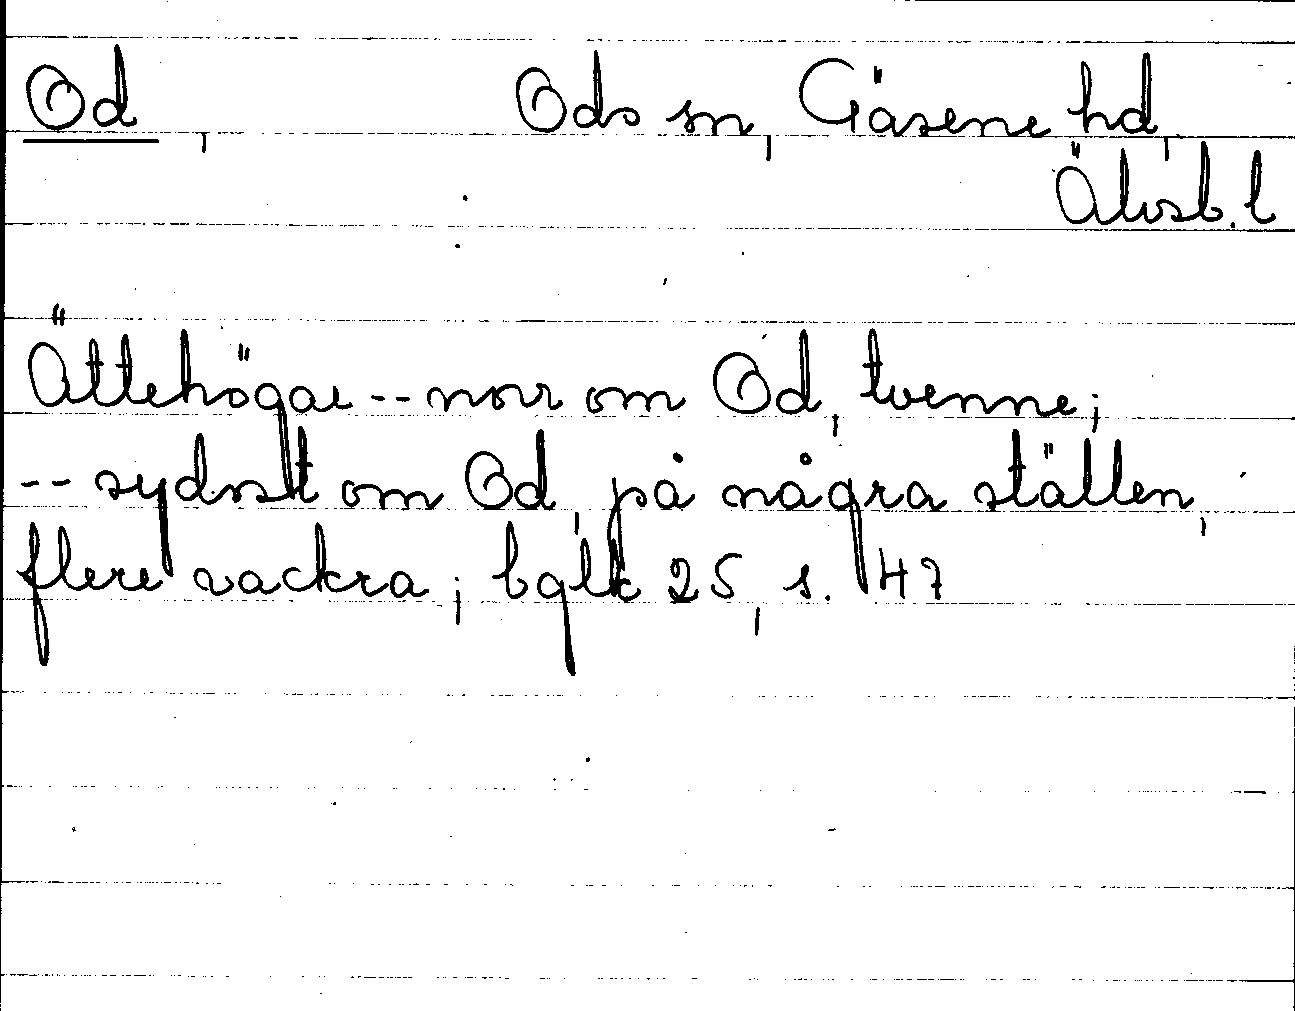 Od, Ods sn, Gäsene hd,
Älvsb. l
Ättehögar -- norr om Od, tvenne;
-- sydost om Od, på några ställen,
flere vackra; bglk 25, s. 47